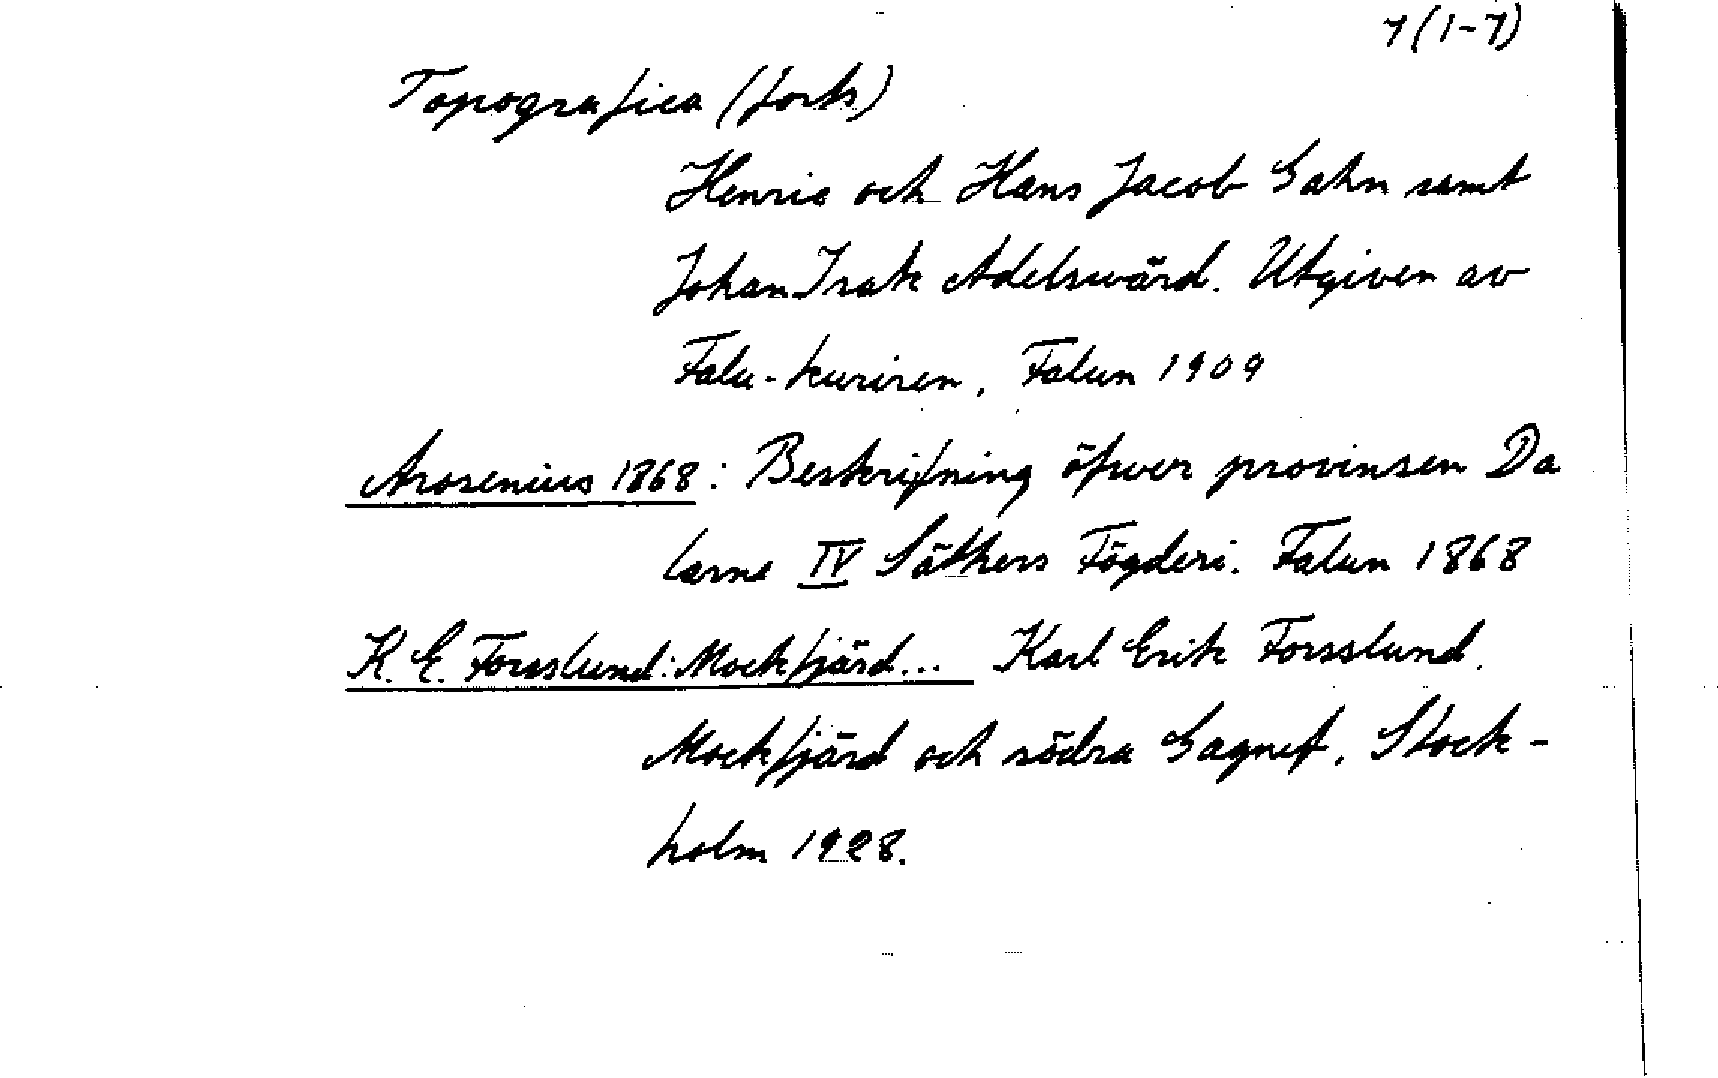 7(1-7)
Topografica (forts)
Henric och Hans Jacob Gahn samt
Johan Isak Adelswärd. Utgiven av
Falu-Kuriren, Falun 1909
Arosenius 1868: Beskrifning öfwer provinsen Da
larne IV Säthers Fögderi. Falun 1868
K. E. Forsslund: Mockfjärd... Karl Erik Forsslund.
Mockfjärd och södra Gagnef, Stock-
holm 1928.